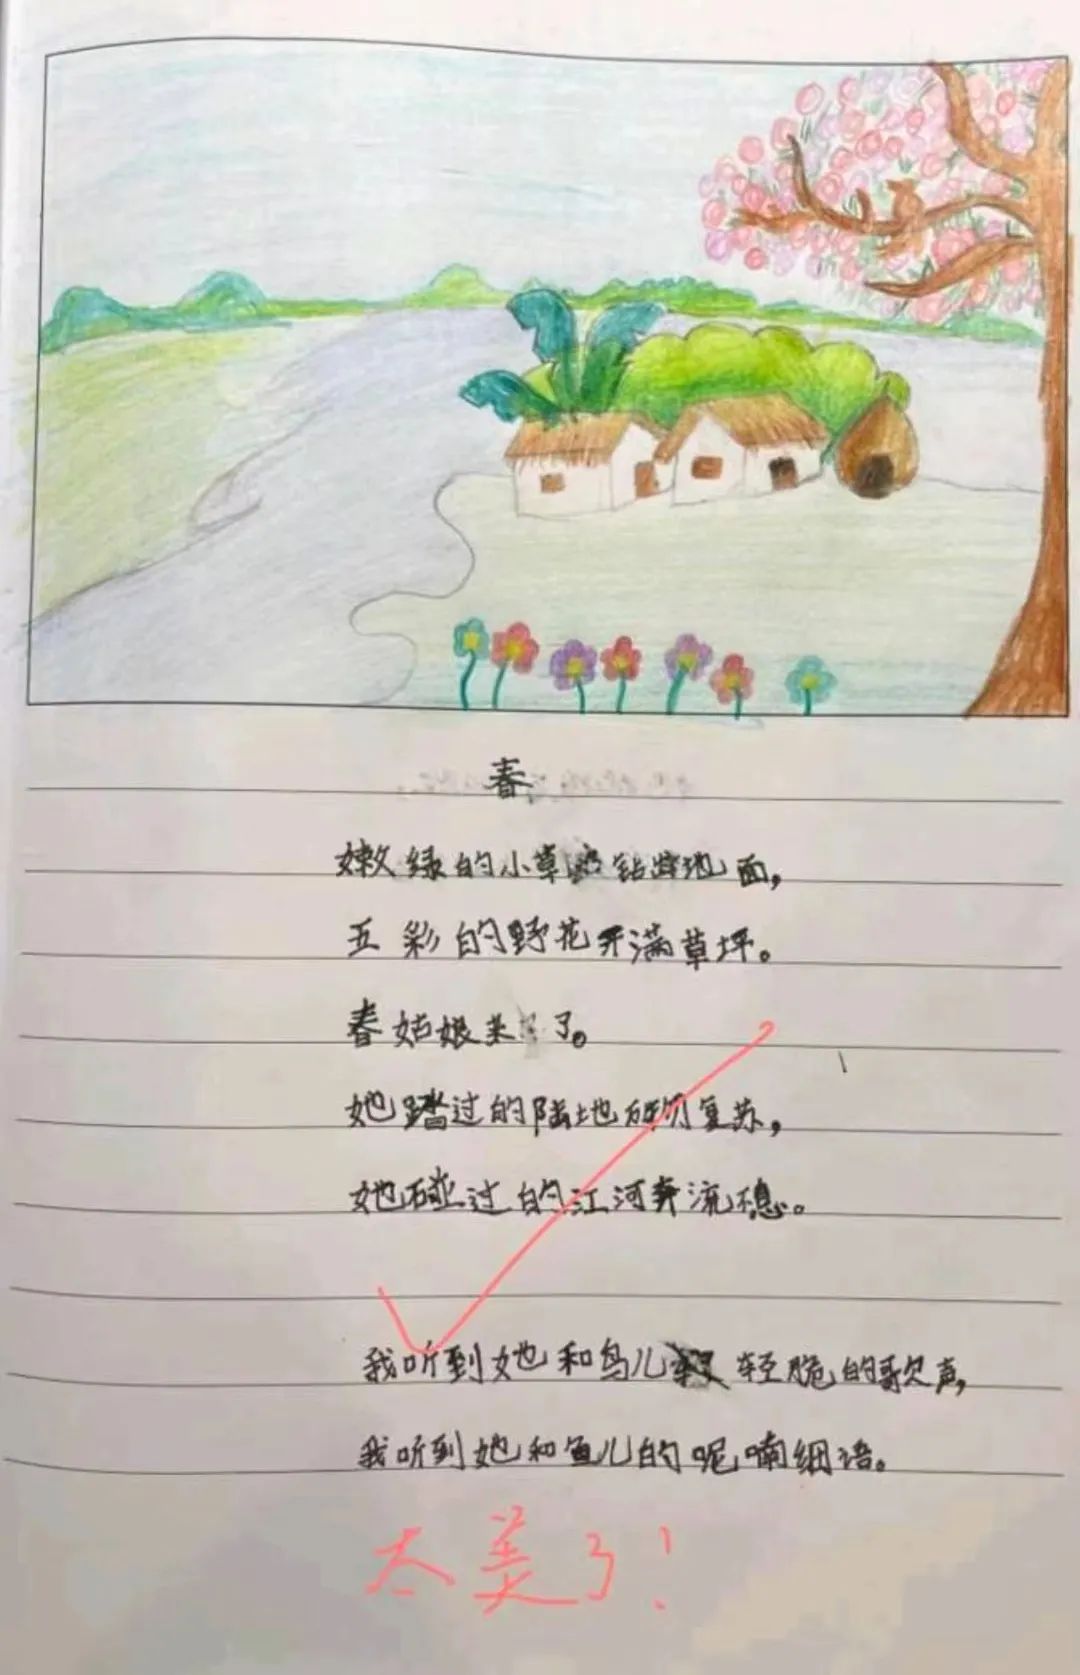 春
嫩绿的小草钻出地面,
五彩的野花开满草坪。
春姑娘来了。
她踏过的陆地万物复苏,
她碰过的江河奔流不息。
我听到她和鸟儿轻脆的歌声,
我听到她和鱼儿的呢喃细语。
太美了!